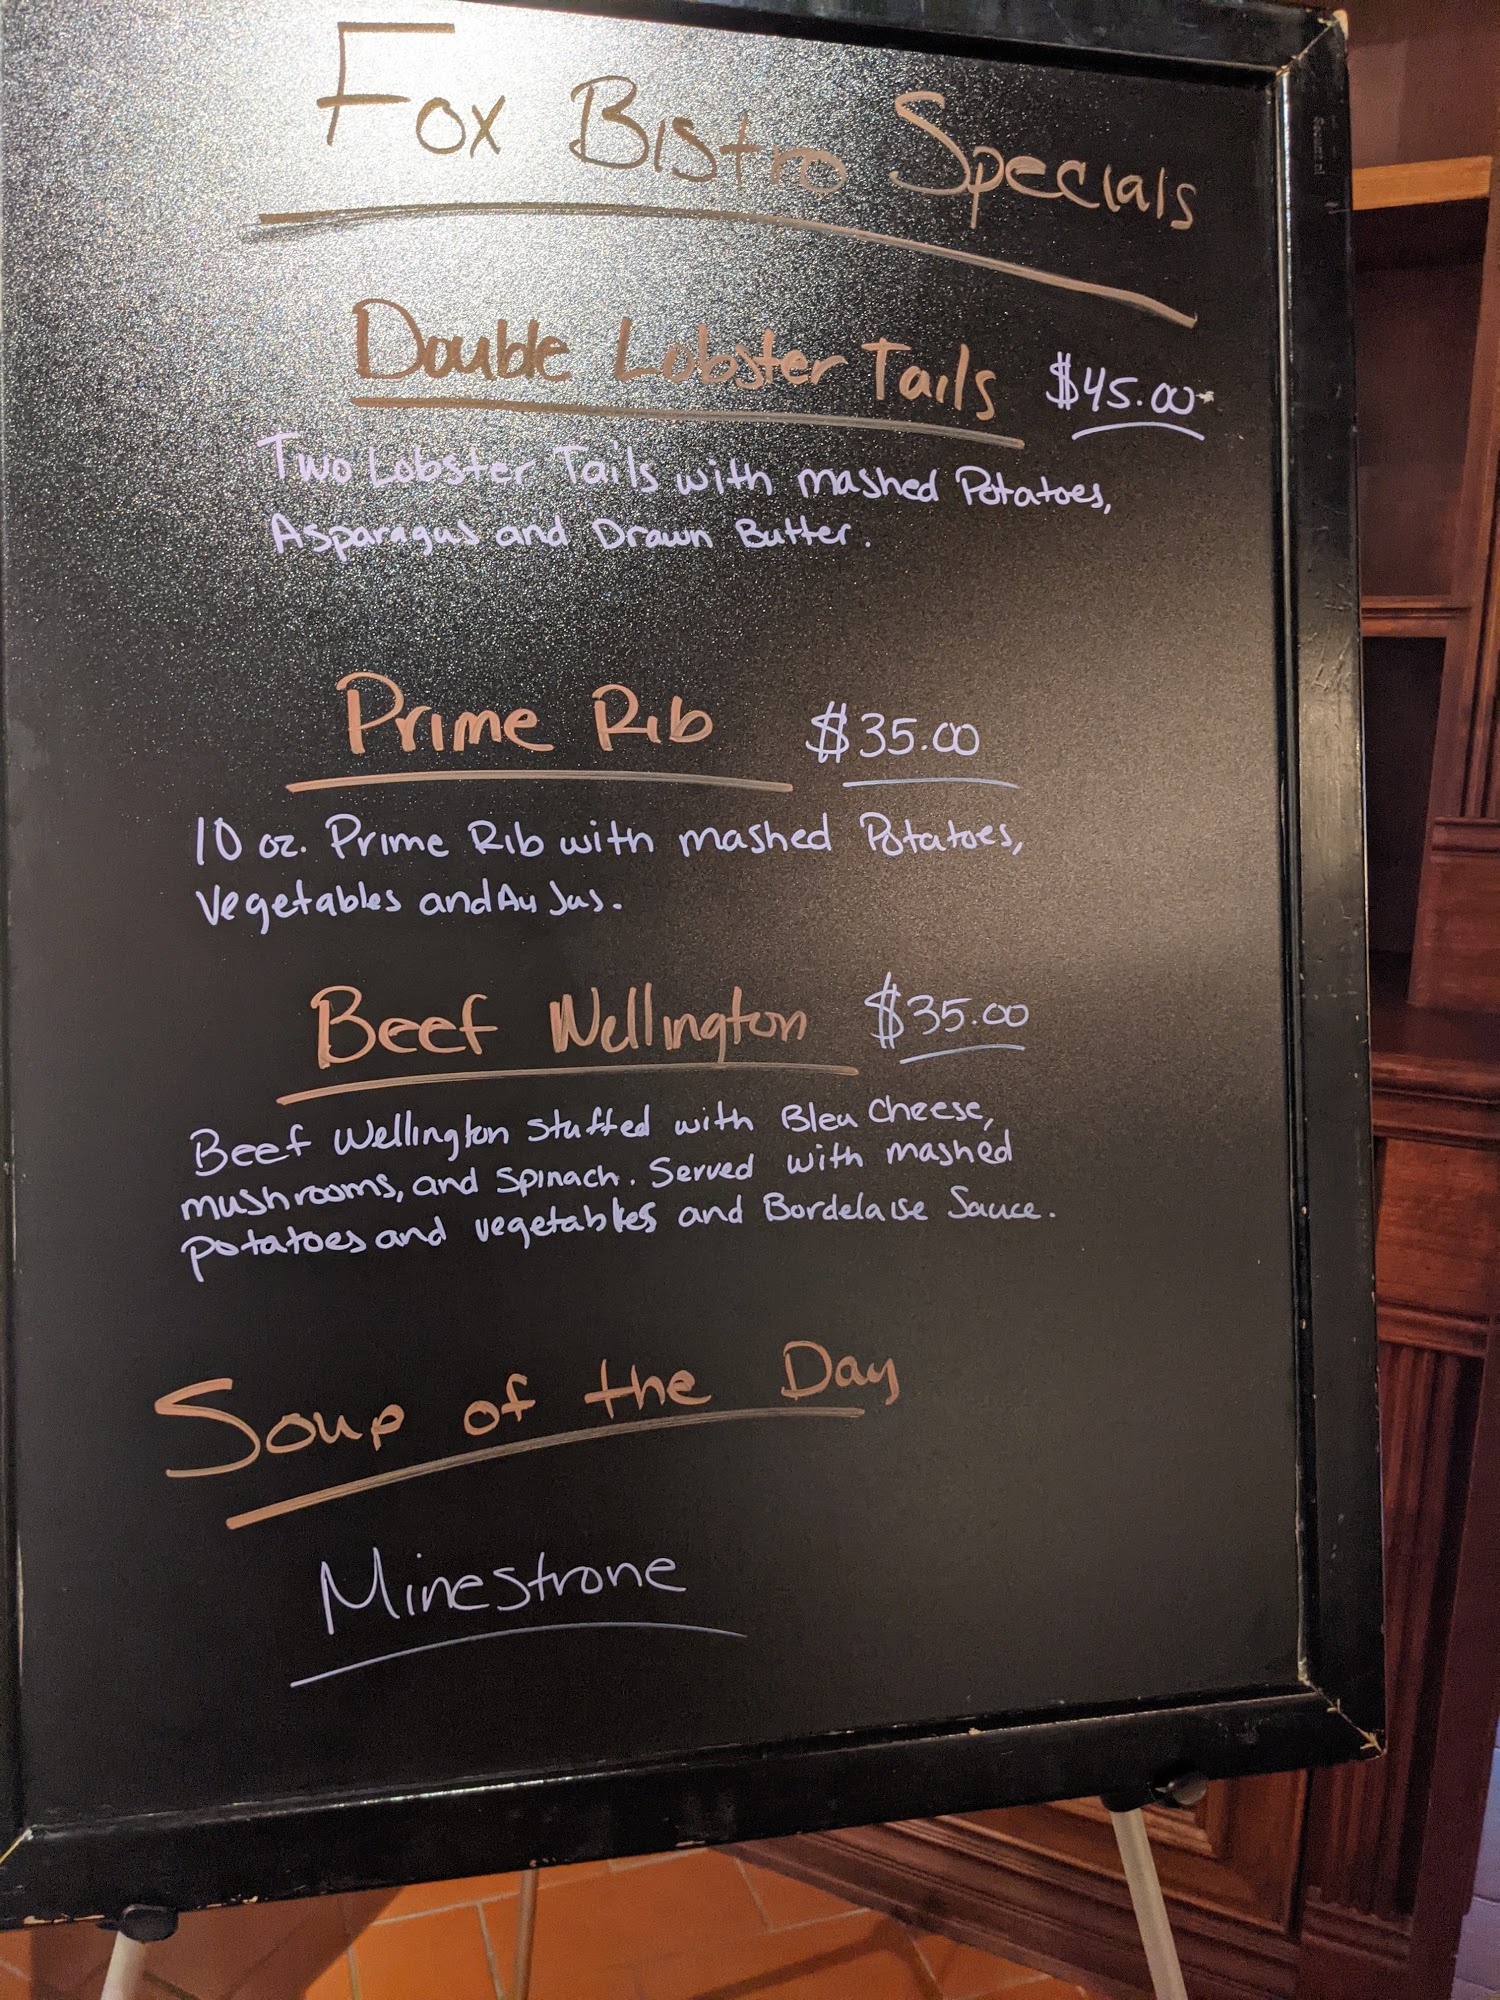 Fox Bistro Specials
Double Lobster Tails $45.00
Two Lobster Tails with mashed Potatoes,
Asparagus and Drawn Butter.
Prime Rib $35.00
10 oz. Prime Rib with mashed Potatoes,
Vegetables and Au Jus.
Beef Wellington $35.00
Beef Wellington stuffed with Bleu Cheese,
mushrooms, and spinach. Served with mashed
potatoes and vegetables and Bordelaise Sauce.
Soup of the Day
Minestrone